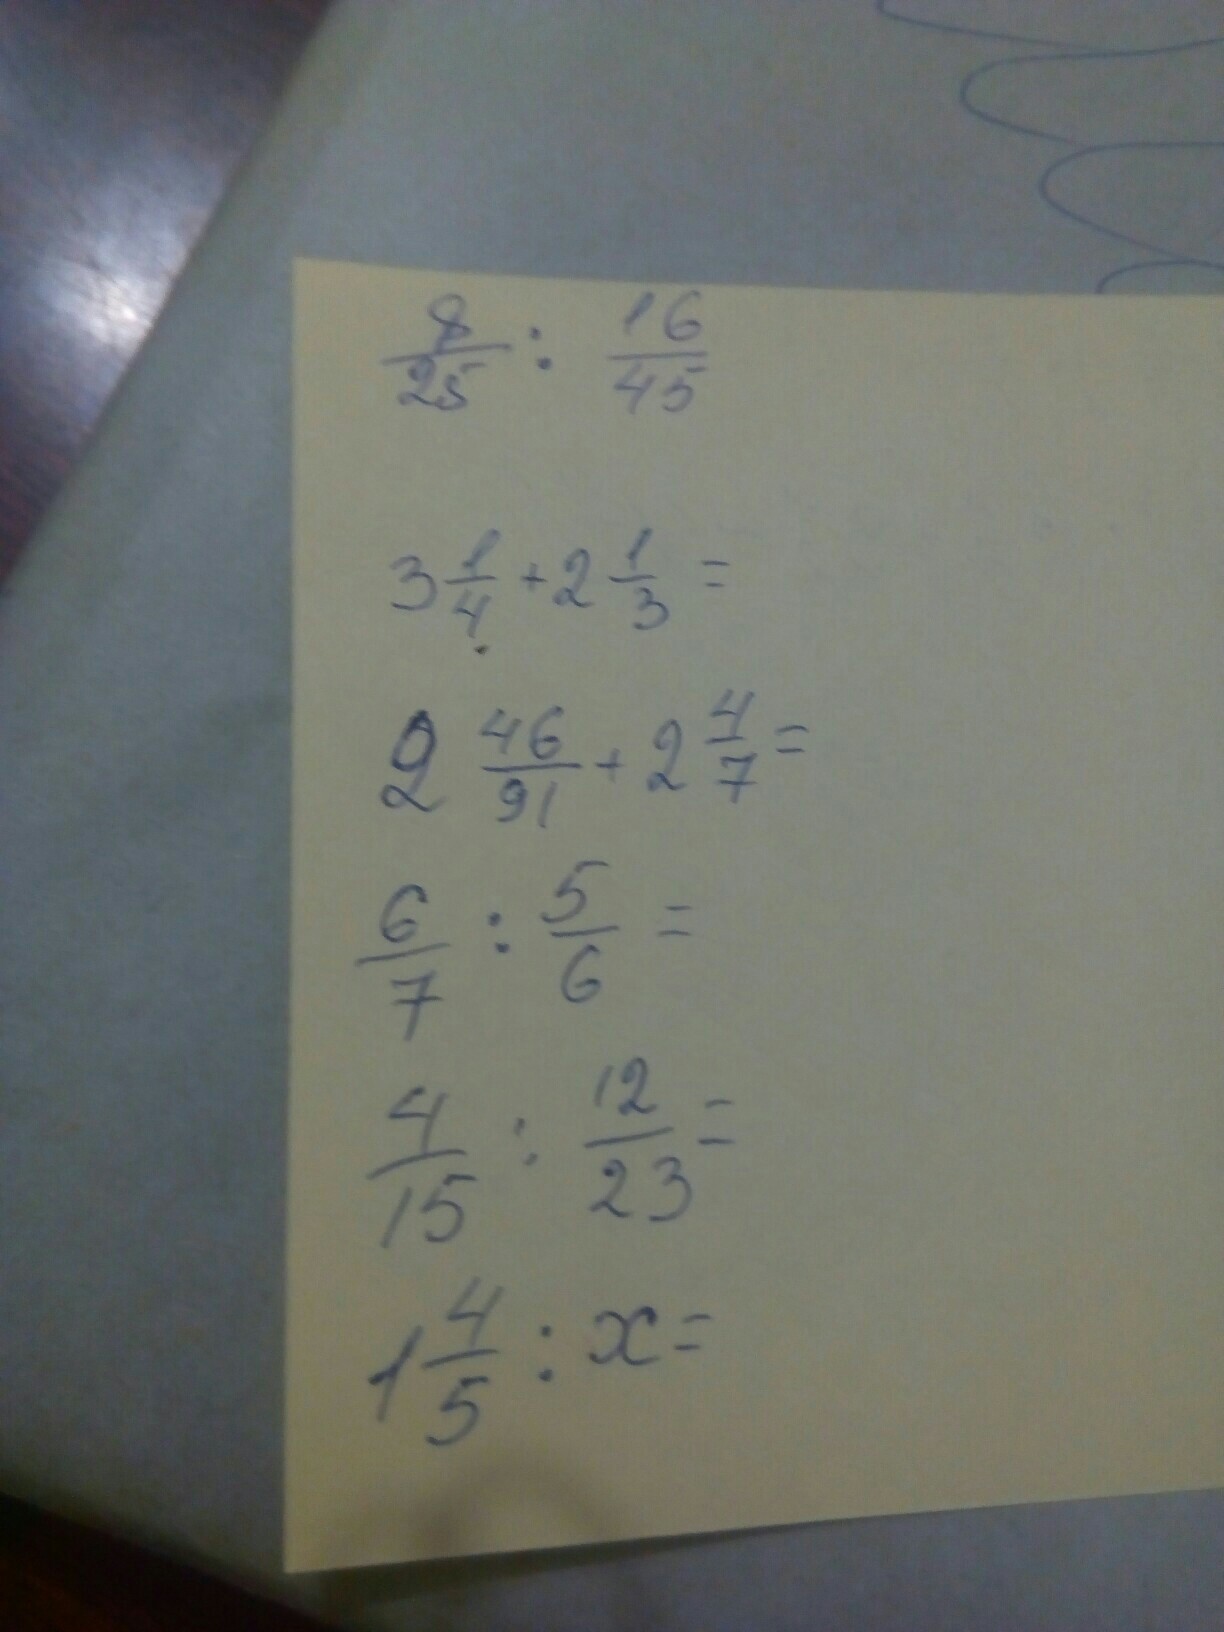 8/25 : 16/45
3 1/4 + 2 1/3 =
2 46/91 + 2 4/7 =
6/7 : 5/6 =
4/15 : 12/23 =
1 4/5 : x =